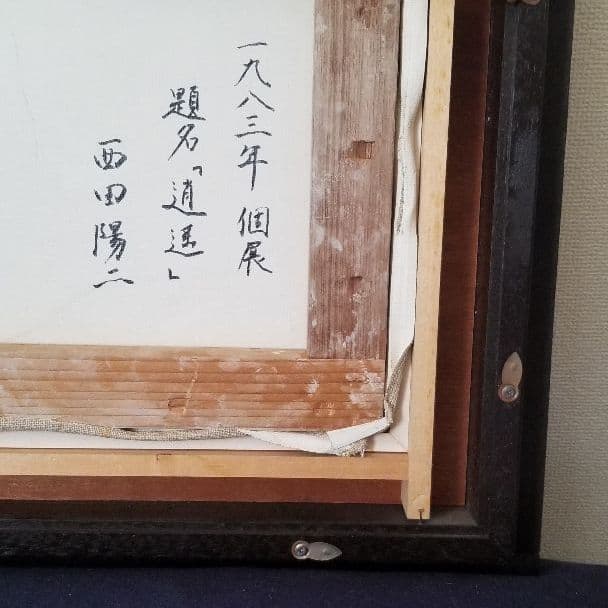 一九八三年 個展
題名「逍遥」
西田陽二